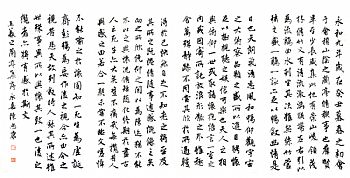 永和九年歲在癸丑暮春之初會
于會稽山陰之蘭亭脩禊事也群賢
畢至少長咸集此地有崇山峻領茂
林脩竹又有清流激湍映帶左右引以
為流觴曲水列坐其次雖無絲竹管
弦之盛一觴一詠亦足以暢敘幽情是
日也天朗氣清惠風和暢仰觀宇宙
之大俯察品類之盛所以遊目騁懷
足以極視聽之娛信可樂也夫人之相
與俯仰一世或取諸懷抱悟言一室之
內或因寄所託放浪形骸之外雖趣
舍萬殊靜躁不同當其欣於所遇暫
得於己快然自足不知老之將至及
其所之既惓情隨事遷感慨係之矣
向之所欣俛仰之間以為陳迹猶不
能不以之興懷況脩短隨化終期於盡古
人云死生亦大矣豈不痛哉每攬昔人
興感之由若合一契未嘗不臨文嗟悼
不能喻之於懷固知一死生為虛誕
齊彭殤為妄作後之視今亦由今之
視昔悲夫故列敘時人錄其所述雖
世殊事異所以興懷其致一也後之
攬者亦將有感於斯文
王羲之蘭亭集序